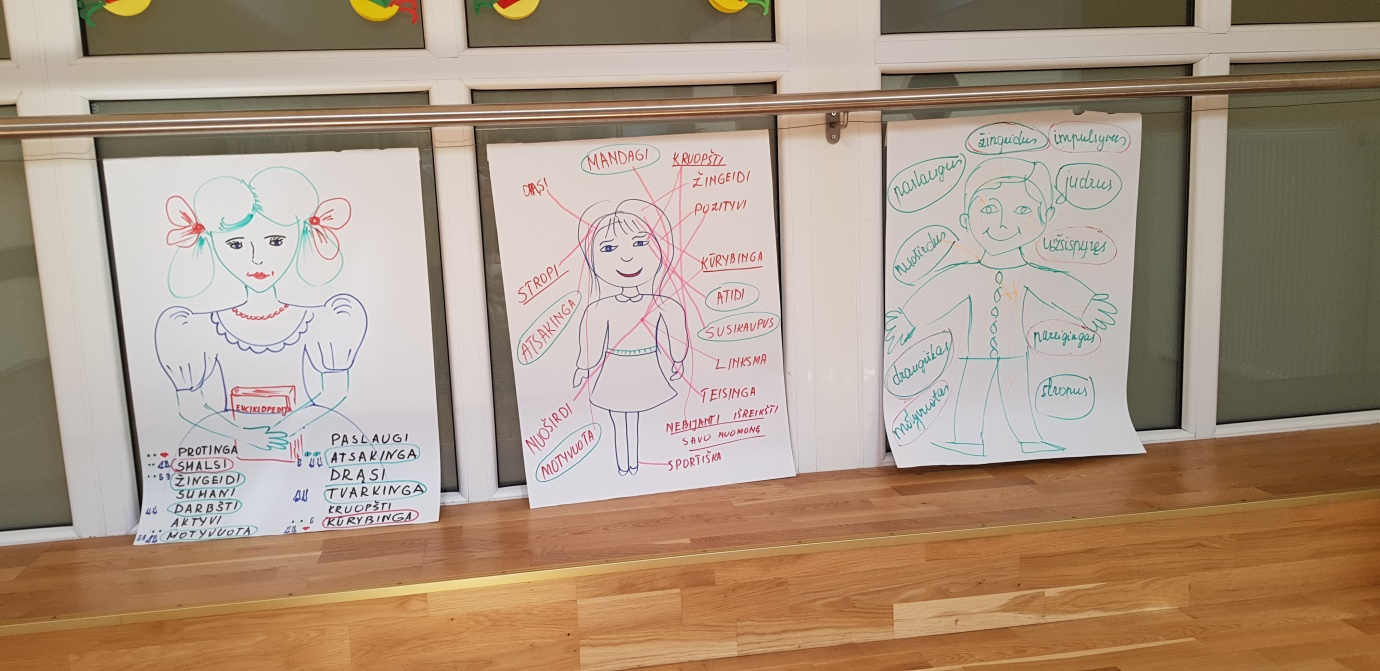 ENCIKLOPEDIJA
PROTINGA
SMALSI
ŽINGEIDI
SUMANI
DARBŠTI
AKTYVI
MOTYVUOTA
PASLAUGI
ATSAKINGA
DRĄSI
TVARKINGA
KRUOPŠTI
KŪRYBINGA
MANDAGI
DRĄSI
KRUOPŠTI
ŽINGEIDI
POZITYVI
STROPI
KŪRYBINGA
ATSAKINGA
ATIDI
SUSIKAUPUS
LINKSMA
TEISINGA
NUOŠIRDI
NEBIJANTI IŠREIKŠTI
SAVO NUOMONĘ
MOTYVUOTA
SPORTIŠKA
žingeidus
impulsyvus
paslaugus
judrus
nuoširdus
užsispyręs
pareigingas
draugiškas
stropus
motyvuotas